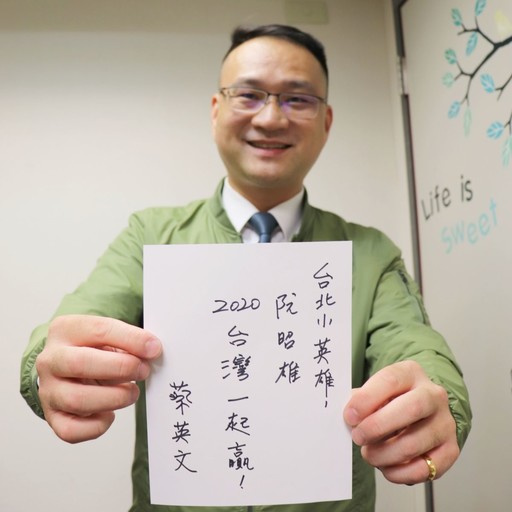 台北小英雄,
阮昭雄
2020台灣一起贏!
蔡英文
Life is
Sweet